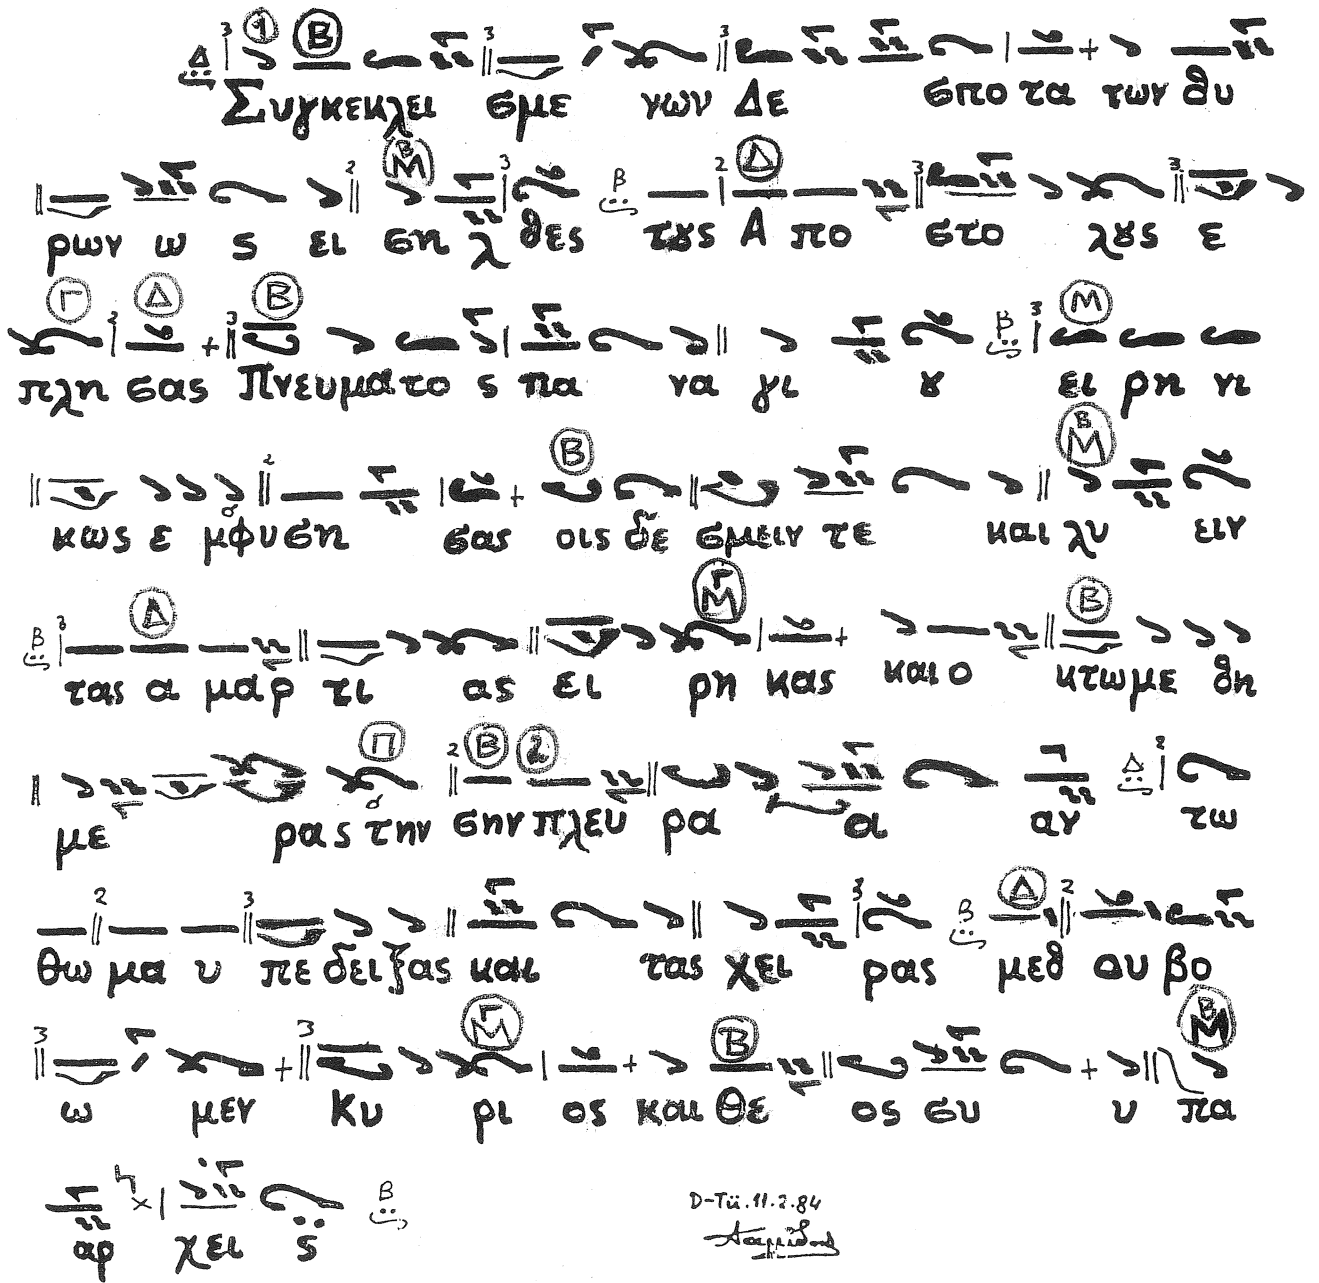 Συγκεκλει σμε νων Δε σπο τα των θυ
ρων ω ς ει ση λ θες τȣς Α πο στο λȣς ε
πλη σας Πνευματο ς πα να γι ȣ ει ρη νι
κως ε μφυση σας οις δε σμειν τε και λυ ειν
τας α μαρ τι ας ει ρη κας και ο κτωμε θη
με ρας την σην πλευ ρα α αν τω
θω μα υ πε δειξας και τας χει ρας μεθ ου βο
ω μεν Κυ ρι ος και Θε ος συ υ πα
αρ χει ς
D-Tü.11.2.84